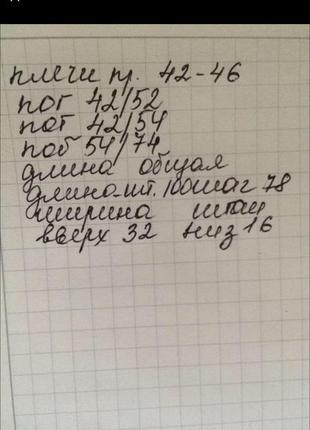 плечи пр. 42-46
пог 42/52
пот 42/54
поб 54/74
длина общая
длина шт. по шаг 78
ширина штан
вверх 32 низ 16